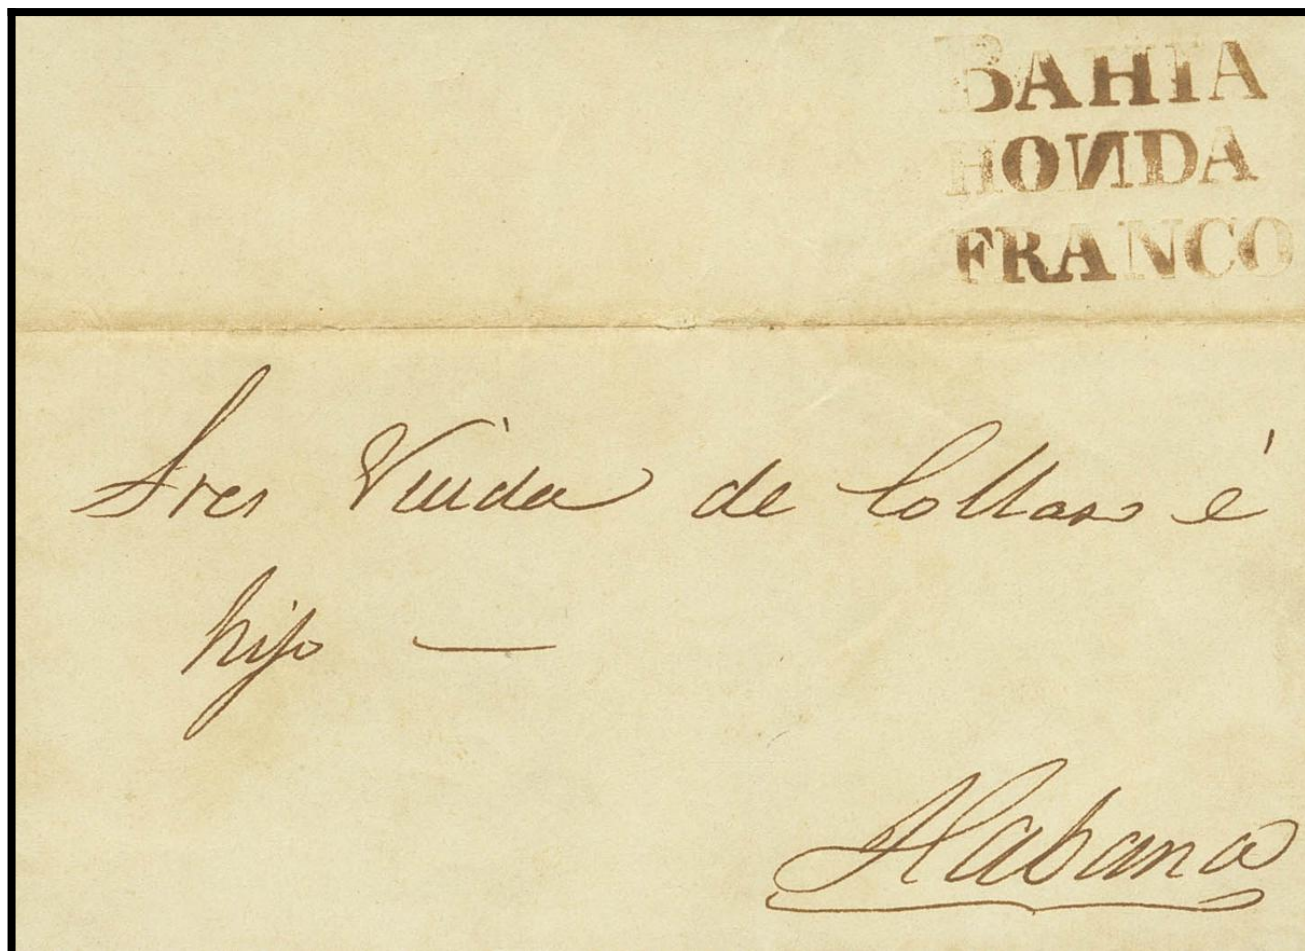 BAHIA
HONDA
FRANCO
Sres Viuda de Collaso é
hijo —
Habana